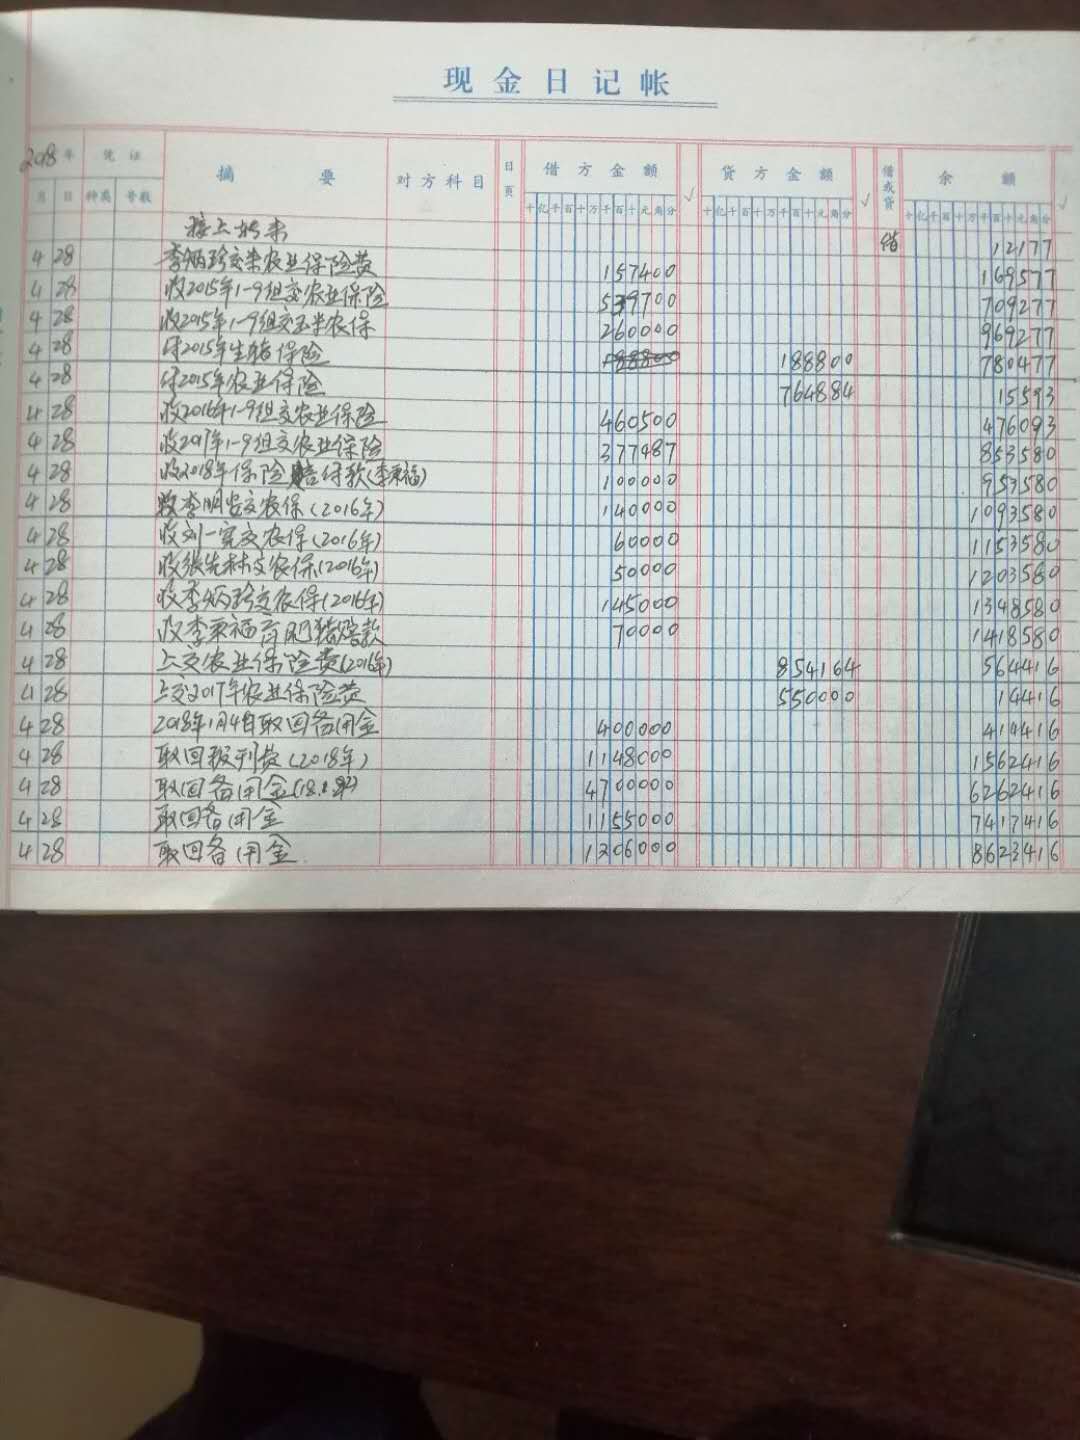 现金日记帐
2018年 凭证 摘要 对方科目 日页 借方金额 √ 贷方金额 √ 借或贷 余额 √
月 日 种类 号数 十亿千百十万千百十元角分 十亿千百十万千百十元角分 十亿千百十万千百十元角分
接上转来 借 12177
4 28 李炳珍交来农业保险费 157400 169577
4 28 收2015年1-9组交农业保险 539700 709277
4 28 收2015年1-9组交玉米农保 260000 969277
4 28 付2015年生猪保险 188800 780477
4 28 付2015年农业保险 764884 15593
4 28 收2016年1-9组交农业保险 460500 476093
4 28 收2017年1-9组交农业保险 377487 853580
4 28 收2018年保险赔付款(李来福) 100000 953580
4 28 收李明安交农保(2016年) 140000 1093580
4 28 收刘一宪交农保(2016年) 60000 1153580
4 28 收张先林交农保(2016年) 50000 1203580
4 28 收李炳珍交农保(2016年) 145000 1348580
4 28 收李来福育肥猪赔款 70000 1418580
4 28 上交农业保险费(2016年) 854164 564416
4 28 上交2017年农业保险费 550000 14416
4 28 2018年1月4日取回备用金 400000 414416
4 28 取回报刊费(2018年) 1148000 1562416
4 28 取回备用金(18. 4700000 6262416
4 28 取回备用金 1155000 7417416
4 28 取回备用金 1206000 8623416